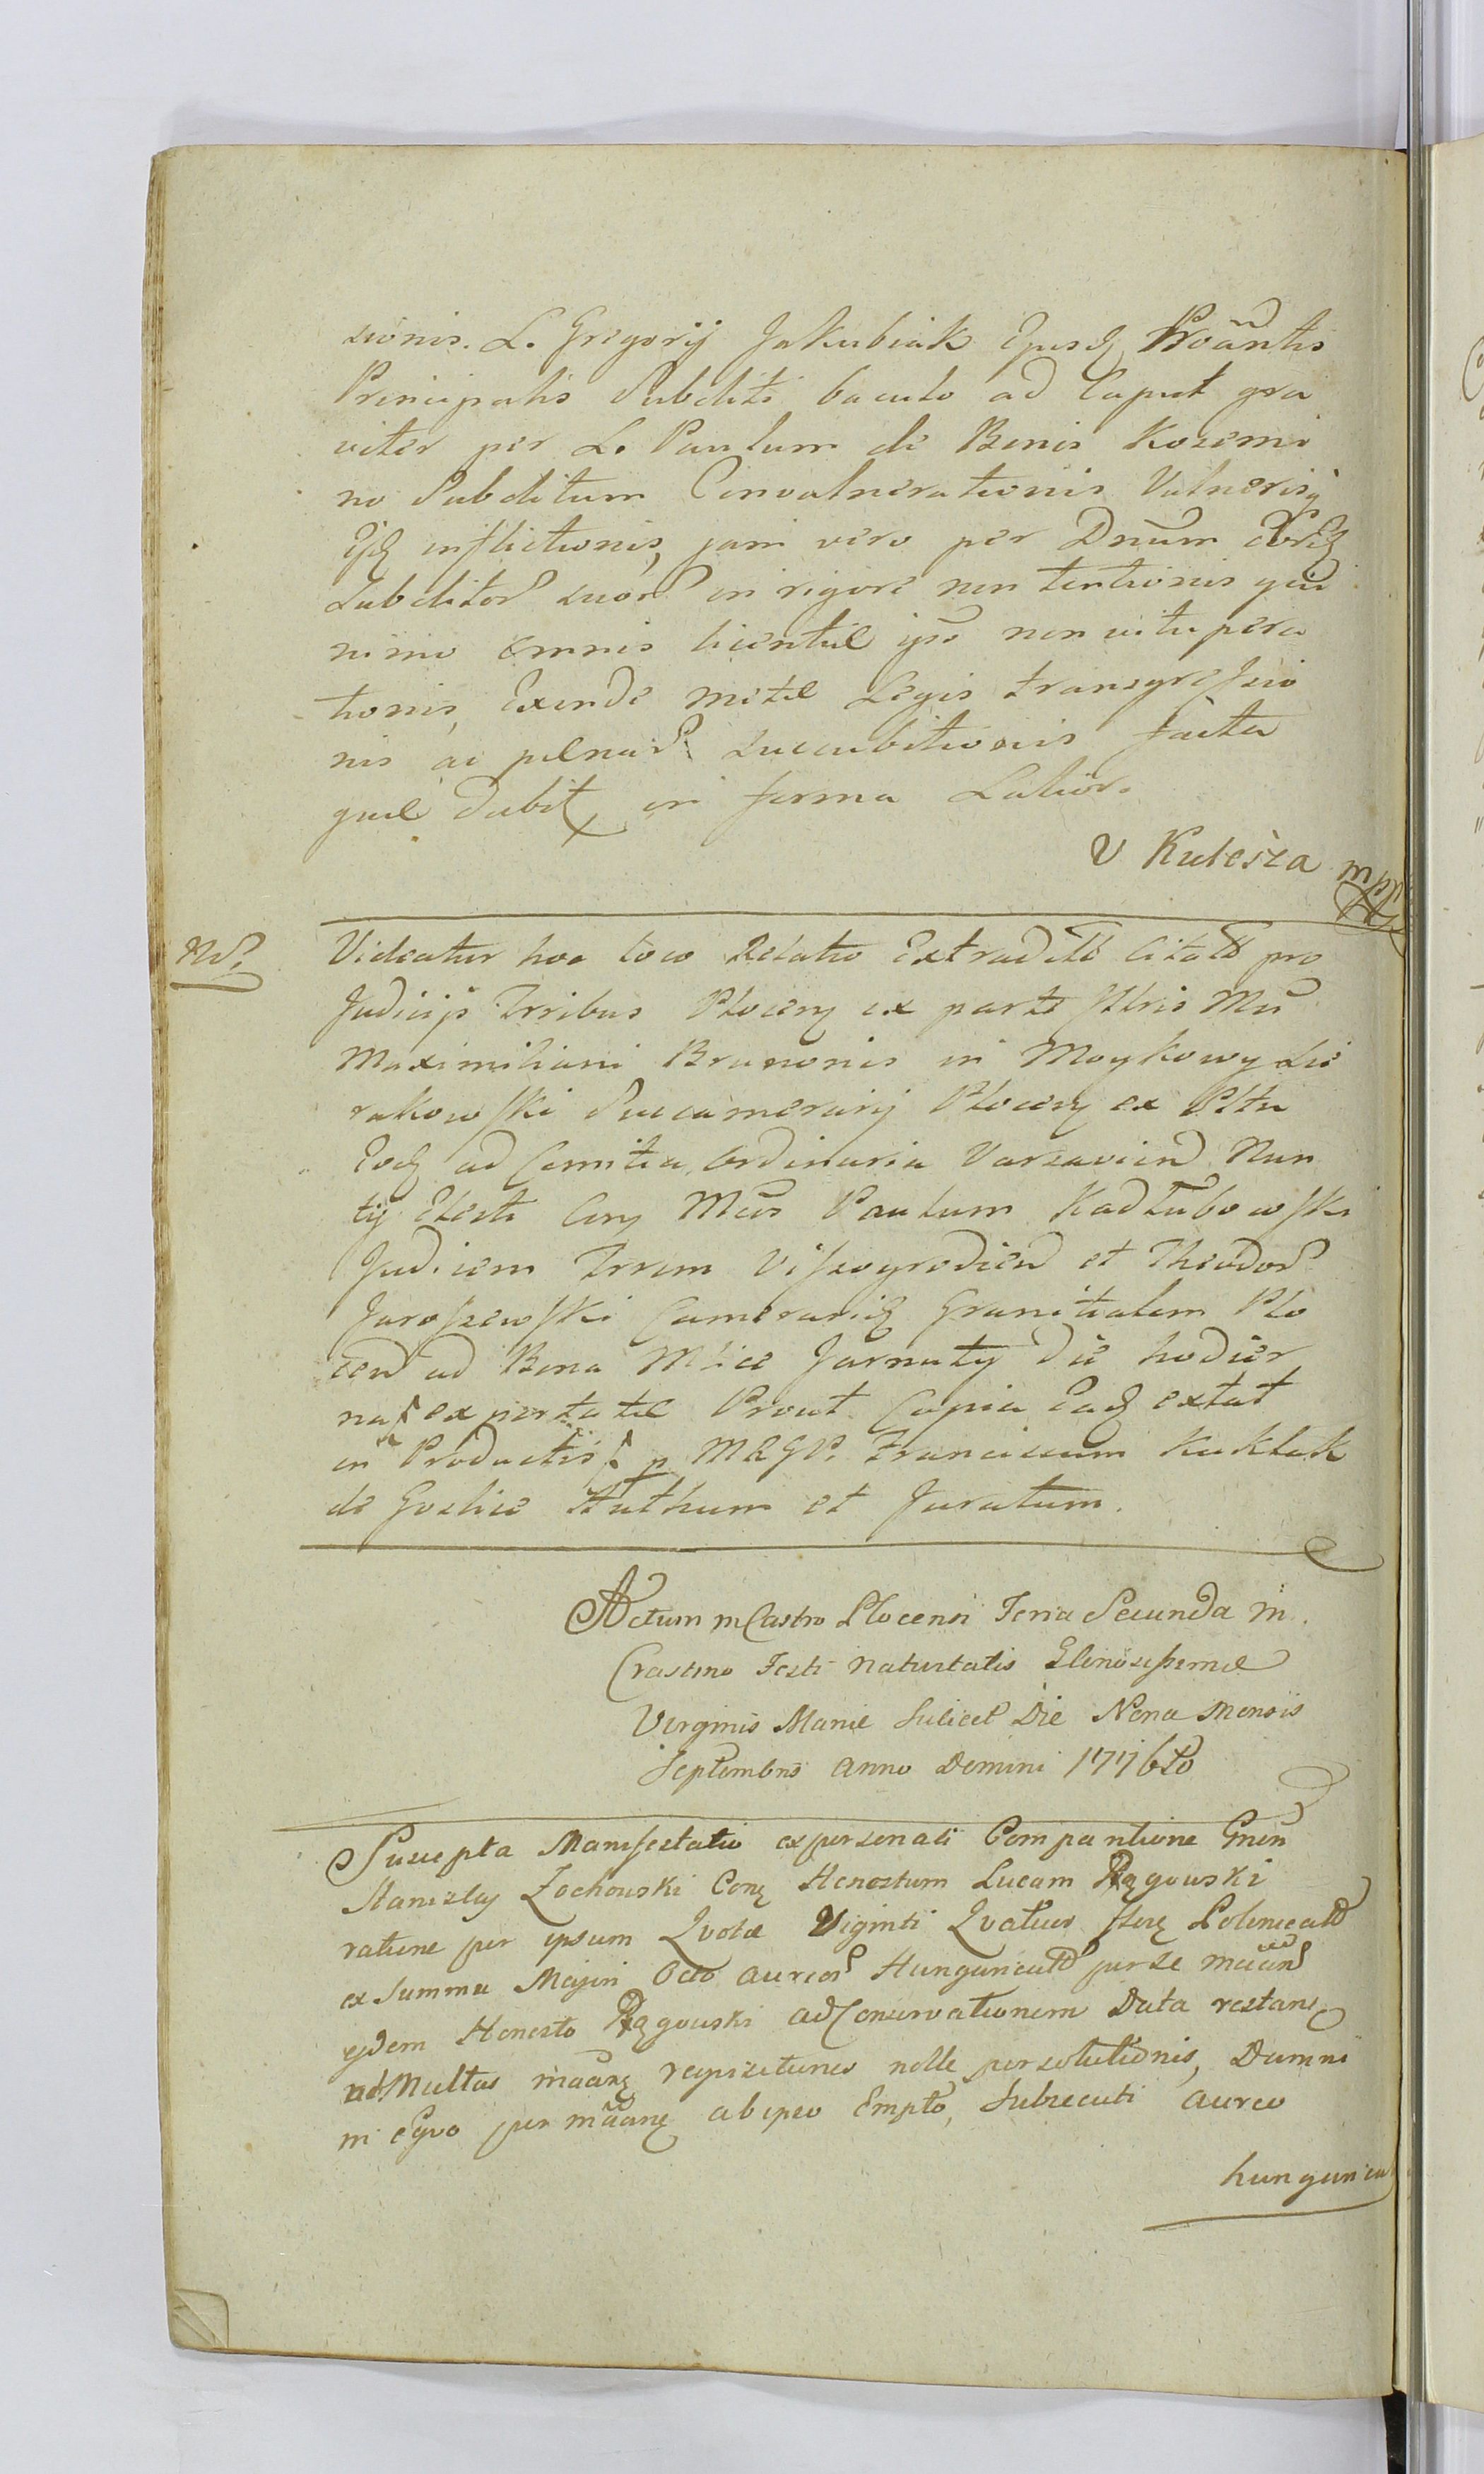 sionis. L. Gregorij Jakubiak Ejusd Proantis
Principalis Subditi baculo ad Caput gra
viter per L. Paulum de Bonis Kozemi
no Subditum Convulnerationis Vulnerisq
Ejd inflictionis, jam vero per Dnum
Subditor suor in rigore non tentionis
nimo omnis licentiæ ipso non vitupera
tionis, Exinde metæ Legis transgressio
nis ac pænar succubitionis facta
quæ dabit in forma Latior.
V Kulesza mpp
Videatur hoc loco Relatio Extradit Citat pro
Judicijs Trribus Plocen ex parte Illris Mci
Maximiliani Brunonis in Moykowy Sie
rakowski Succamerarij Plocen ex Pltu
Eod ad Comitia Ordinaria Varsavien Nun
tij Electi Con Mcos Paulum Kadłubowski
Judicem Trrem Viszogrodien et Theodor
Jaroszewski Camerarid Granitialem Plo
cen ad Bona Mlice Jarnuty die hodier
na exportatæ Prout Copia Ead extat
in Productis p MRGP. Franciscum Kuklak
de Goslice Authum et Juratum.
Actum in Castro Plocensi Feria Secunda in
Crastino Festi Nativitatis Glinosissimæ
Virginis Mariæ Scilicet Die Nona Mensis
Septembris Anno Domini 1776to
Suscepta Manifestatio ex personali Comparitione Gnen
Stanislaj Zochowski Con Honestum Lucam Rzgowski
ratione per ipsum Quotæ Viginti Qvatuor flor Polonicalt
ex Summa Majori Octo aureor Hungaricalt per se mãan
ejdem Honesto Rzgowski ad Conservationem Data restan
ad Multas mãan reqvisitiones nolle persolutionis, Damni
in eqvo per mãane ab ipso Empto, Subsecuti aureo
hungarica